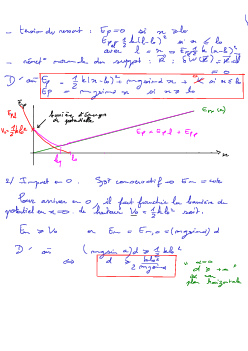 _ tension du ressort : Ep = 0 si x ≥ l₀
Ep = ½ k (l - l₀)² si x ≤ l₀
avec l = x ⇒ Ep = ½ k (x - l₀)²
_ normale du support :
= 0
D'où Ep = ½ k (x - l₀)² + mg sinα x si x ≤ l₀
Ep = mg sinα x si x ≥ l₀
Ep
barrière d'Energie
de potentielle
V₀ = ½ k l₀²
l₀
x
2/ Impact en O. Syst conservatif ⇒ Em = cste
Pour arriver en O, il faut franchir la barrière de
potentiel en x = 0 de hauteur V₀ = ½ k l₀² soit.
Em ≥ V₀ or Em = Em,0 = (mg sinα) d
D'où (mg sinα) d ≥ ½ k l₀²
⇔ d ≥ k l₀² / 2 mg sinα
α → 0
d → +∞
plan horizontal